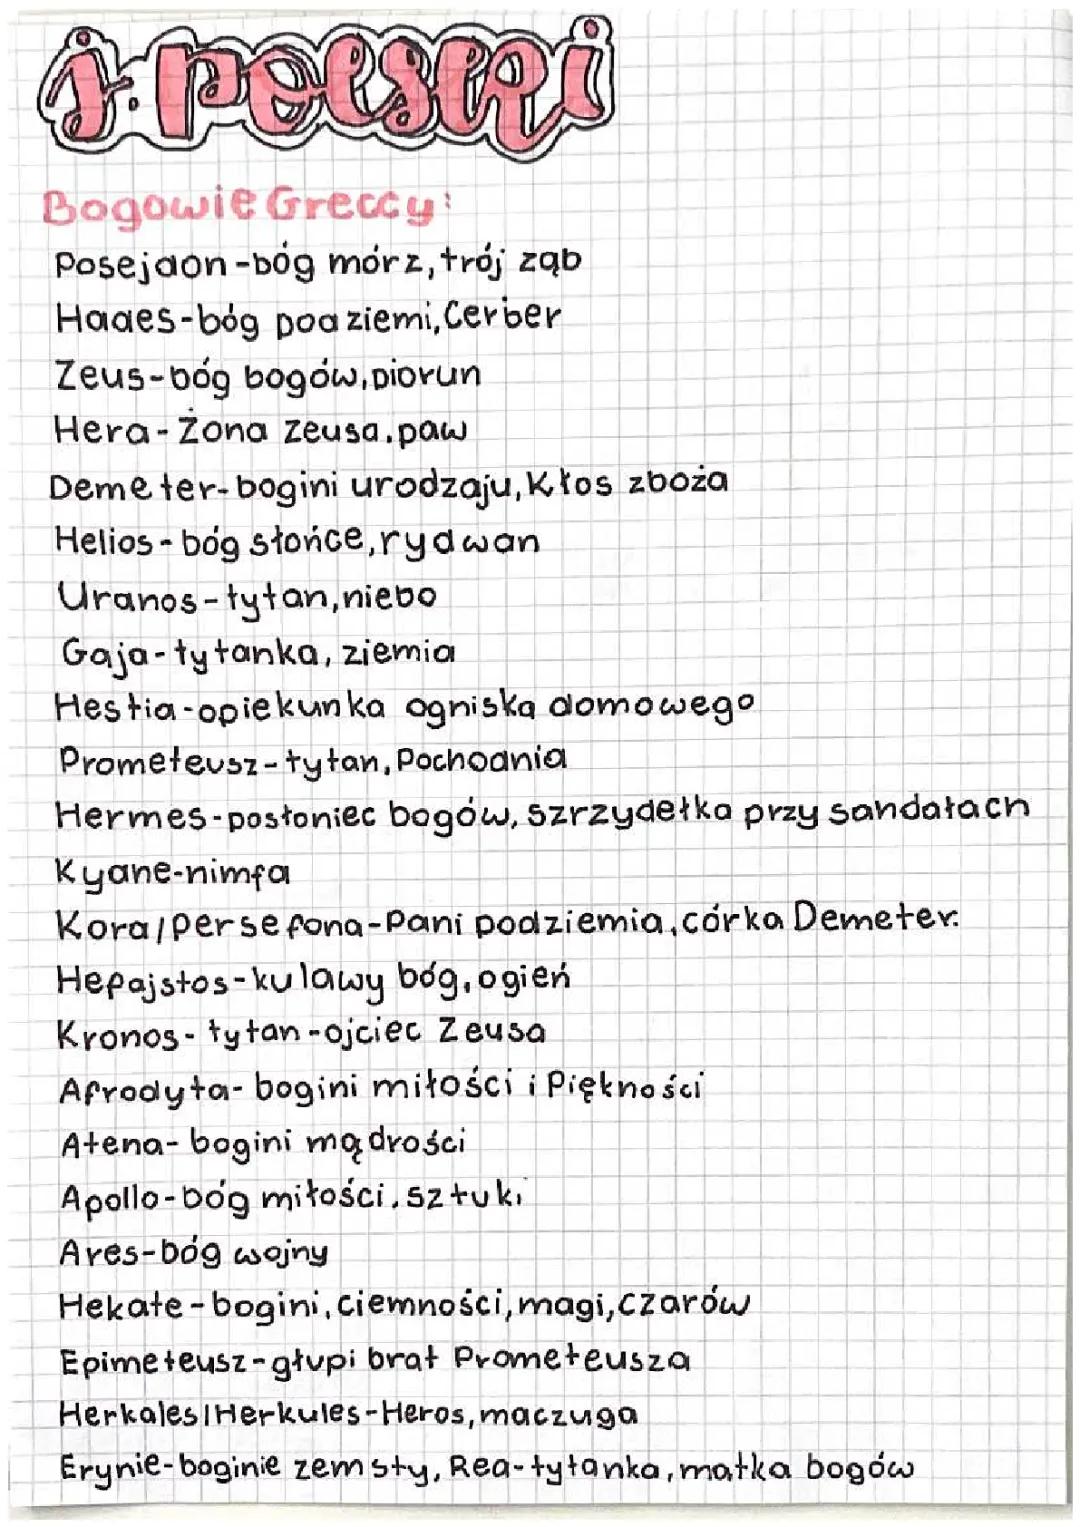 j. polski
Bogowie Greccy:
Posejdon-bóg mórz, trój ząb
Hades-bóg podziemi, Cerber
Zeus-bóg bogów, piorun
Hera-Żona zeusa, paw
Demeter-bogini urodzaju, Kłos zboża
Helios-bóg słońce, rydwan
Uranos-tytan, niebo
Gaja-tytanka, ziemia
Hestia-opiekunka ogniska domowego
Prometeusz-tytan, Pochodnia
Hermes-posłoniec bogów, szrzydełka przy sandałach
Kyane-nimfa
Kora/Persefona-Pani podziemia, córka Demeter.
Hefajstos-kulawy bóg, ogień
Kronos-tytan-ojciec Zeusa
Afrodyta-bogini miłości i Piękności
Atena-bogini mądrości
Apollo-bóg miłości, sztuki
Ares-bóg wojny
Hekate-bogini, ciemności, magi, czarów
Epimeteusz-głupi brat Prometeusza
Herkales/Herkules-Heros, maczuga
Erynie-boginie zemsty, Rea-tytanka, matka bogów